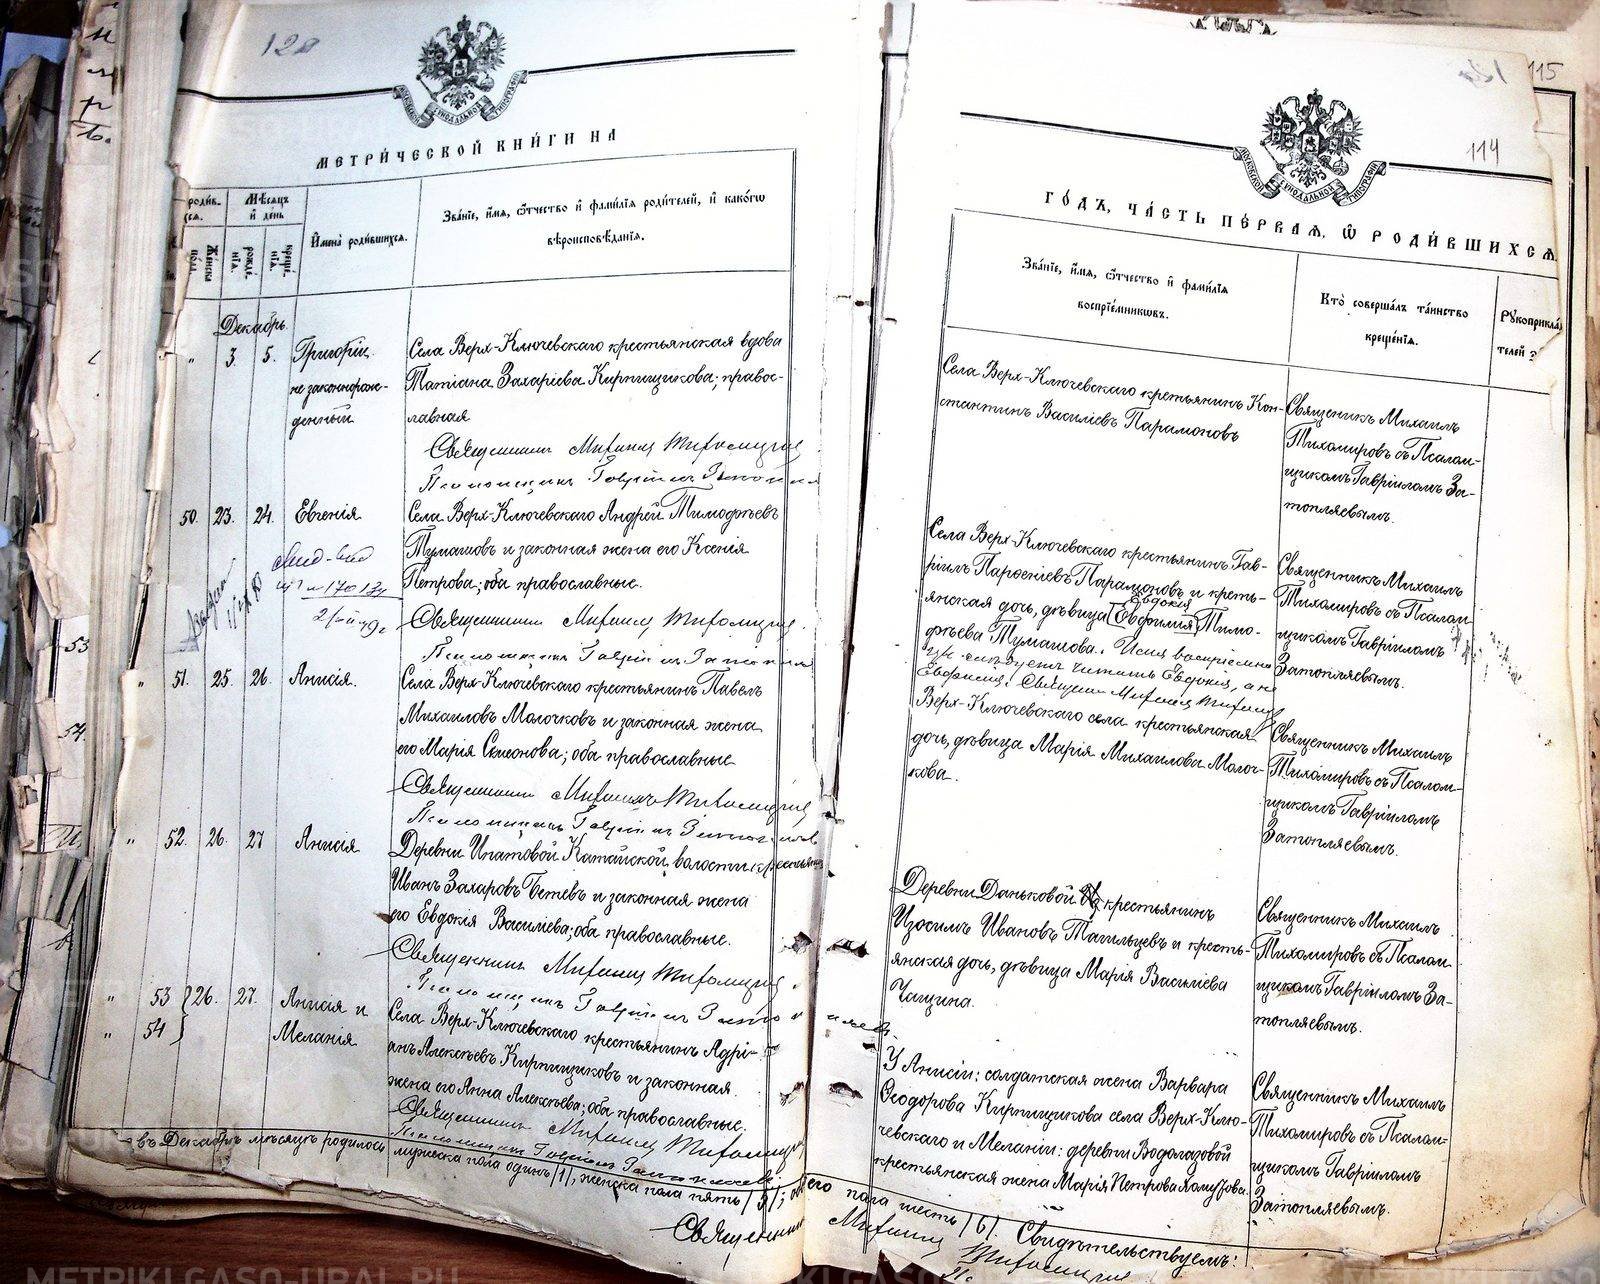 120
МОСКОВСКОЙ СѴНОДАЛЬНОЙ ТИПОГРАФІИ
МЕТРИ́ЧЕСКОЙ КНИ́ГИ НА
Мѣсяцъ и́ де́нь
Женска по́ла
рожде́нїѧ.
креще́нїѧ.
И҆мена̀ роди́вшихсѧ.
Зва́нїе, и҆́мѧ, ѻ҆́тчество и҆ фами́лїѧ роди́телей, и҆ како́гѡ
вѣроисповѣ́данїѧ.
Декабрь.
„ 3. 5. Григорій
не законнорож-
денный
Села Верх-Ключевскаго крестьянская вдова
Татіана Захаріева Кирпищикова; правос-
лавная
Священникъ Михаилъ Тихомировъ
Псаломщикъ Гавріилъ Затопляевъ
50. 23. 24. Евгенія
Села Верх-Ключевскаго Андрей Тимофѣевъ
Тумашовъ и законная жена его Ксенія
Петрова; оба православные.
Священникъ Михаилъ Тихомировъ.
Псаломщикъ Гавріилъ Затопляевъ
„ 51. 25. 26. Анисія.
Села Верх-Ключевскаго крестьянинъ Павелъ
Михаиловъ Молочковъ и законная жена
его Марія Семеонова; оба православные
Священникъ Михаилъ Тихомировъ
Псаломщикъ Гавріилъ Затопляевъ
„ 52. 26. 27 Анисія
Деревни Ипатовой Катайской волости крестьянинъ
Иванъ Захаровъ Бетевъ и законная жена
его Евдокія Василіева; оба православные.
Священникъ Михаилъ Тихомировъ.
Псаломщикъ Гавріилъ Затопляевъ
„ 53 } 26. 27. Анисія и
„ 54 } Меланія
Села Верх-Ключевскаго крестьянинъ Адрі-
анъ Алексѣевъ Кирпищиковъ и законная
жена его Анна Алексѣева; оба православные.
Священникъ Михаилъ Тихомировъ
Псаломщикъ Гавріилъ Затопляевъ
въ Декабрѣ мѣсяцѣ родилось мужеска пола одинъ /1/, женска пола пять /5/; обоего пола шесть /6/. Свидѣтельствуемъ:
Священникъ Михаилъ Тихомировъ
53
54.
115
114
МОСКОВСКОЙ СѴНОДАЛЬНОЙ ТИПОГРАФІИ
ГО́ДЪ, ЧА́СТЬ ПЕ́РВАѦ, Ѡ҆ РОДИ́ВШИХСѦ.
Зва́нїе, и҆́мѧ, ѻ҆́тчество и҆ фами́лїѧ
воспрїе́мникѡвъ.
Кто̀ соверша́лъ та́инство
креще́нїѧ.
Рꙋкоприкла́
телей
Села Верх-Ключевскаго крестьянинъ Кон-
стантинъ Василіевъ Парамоновъ
Священникъ Михаилъ
Тихомировъ съ Псалом-
щикомъ Гавріиломъ За-
топляевымъ.
Села Верх-Ключевскаго крестьянинъ Гав-
ріилъ Парѳеніевъ Парамоновъ и кресть-
Евдокія
янская дочь, дѣвица (Евфимія) Тимо-
фѣева Тумашова. Имя воспріемни
цы слѣдуетъ читать Евдокія, а не
Евфимія. Священникъ Михаилъ Тихомировъ
Священникъ Михаилъ
Тихомировъ съ Псалом-
щикомъ Гавріиломъ
Затопляевымъ.
Верх-Ключевскаго села крестьянская
дочь, дѣвица Марія Михаилова Молоч-
кова.
Священникъ Михаилъ
Тихомировъ съ Псалом-
щикомъ Гавріиломъ
Затопляевымъ.
Деревни Даньковой крестьянинъ
Изосимъ Ивановъ Тагильцевъ и кресть-
янская дочь, дѣвица Марія Василіева
Чащина.
Священникъ Михаилъ
Тихомировъ съ Псалом-
щикомъ Гавріиломъ За-
топляевымъ.
У Анисіи: солдатская жена Варвара
Ѳеодорова Кирпищикова села Верх-Клю-
чевскаго и Меланіи: деревни Водолазовой
крестьянская жена Марія Петрова Хомутова
Священникъ Михаилъ
Тихомировъ съ Псалом-
щикомъ Гавріиломъ
Затопляевымъ.
METRIKI.GASO-URAL.RU